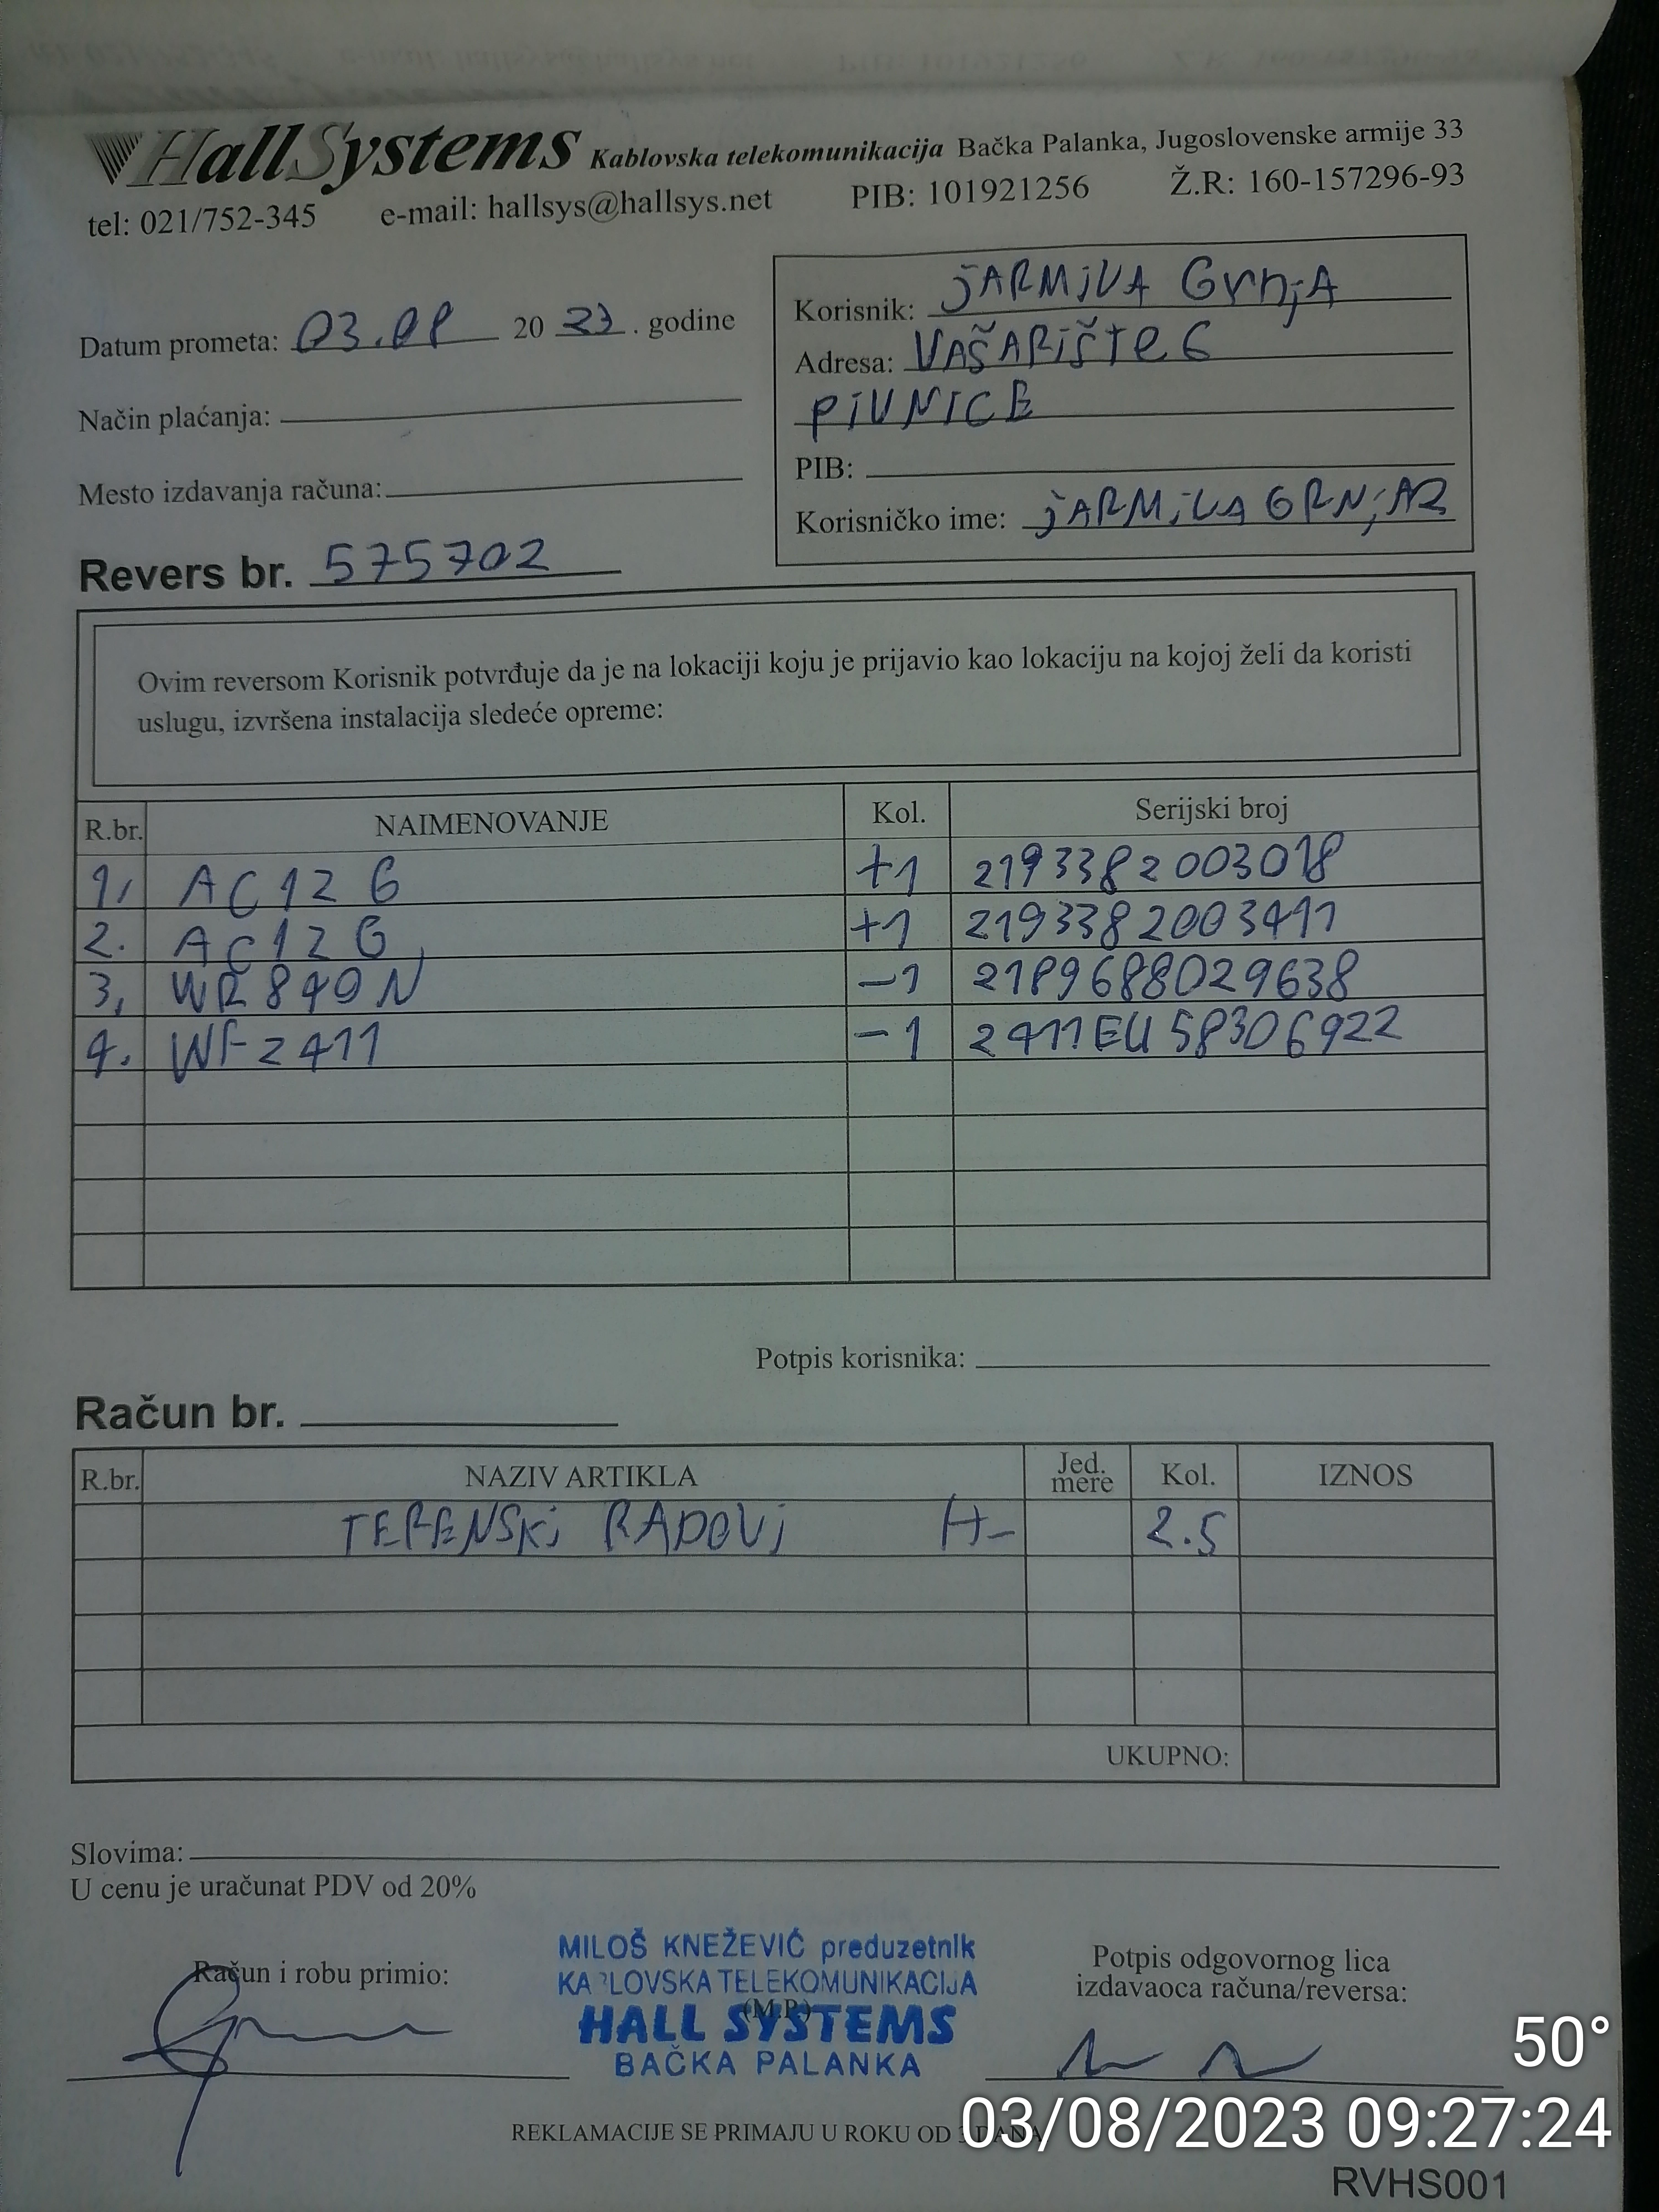 HallSystems Kablovska telekomunikacija Bačka Palanka, Jugoslovenske armije 33
tel: 021/752-345 e-mail: hallsys@hallsys.net PIB: 101921256 Ž.R: 160-157296-93
Datum prometa: 03.08 2023. godine
Način plaćanja:
Mesto izdavanja računa:
Korisnik: JARMILA GrnjA
Adresa: VAŠARIŠTE 6
PIVNICE
PIB:
Korisničko ime: JARMILA GRNJAR
Revers br. 575702
Ovim reversom Korisnik potvrđuje da je na lokaciji koju je prijavio kao lokaciju na kojoj želi da koristi
uslugu, izvršena instalacija sledeće opreme:
R.br. NAIMENOVANJE Kol. Serijski broj
1, AC12 G +1 2193382003018
2. AC12 G +1 2193382003411
3, WR 840 N -1 2189688029638
4. WF2411 -1 2411EU58306922
Potpis korisnika:
Račun br.
R.br. NAZIV ARTIKLA Jed. mere Kol. IZNOS
TERENSKI RADOVI H- 2.5
UKUPNO:
Slovima:
U cenu je uračunat PDV od 20%
Račun i robu primio:
MILOŠ KNEŽEVIĆ preduzetnik
KABLOVSKA TELEKOMUNIKACIJA
(M.P.)
HALL SYSTEMS
BAČKA PALANKA
Potpis odgovornog lica
izdavaoca računa/reversa:
50°
REKLAMACIJE SE PRIMAJU U ROKU OD
03/08/2023 09:27:24
RVHS001